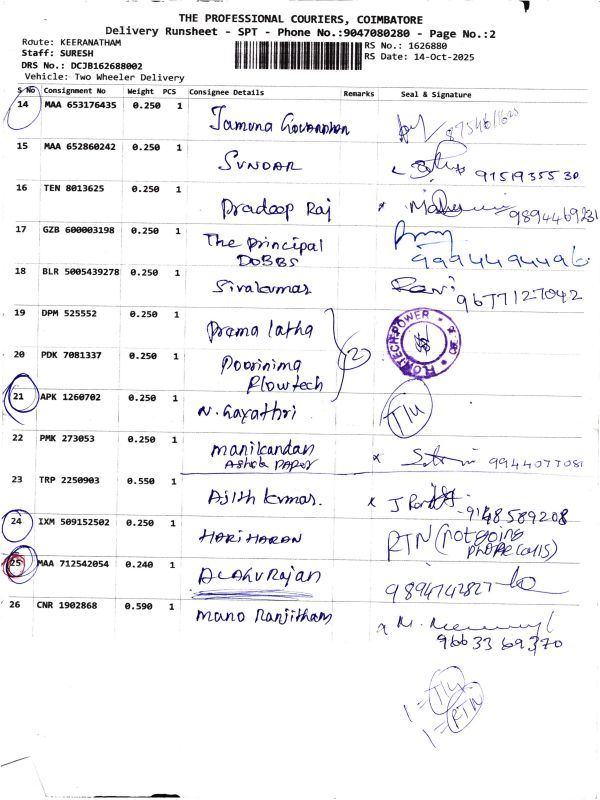 THE PROFESSIONAL COURIERS, COIMBATORE
Delivery Runsheet - SPT - Phone No.:9047080280 - Page No.:2
Route: KEERANATHAM
Staff: SURESH
DRS No.: DCJB162688002
Vehicle: Two Wheeler Delivery
RS No.: 1626880
RS Date: 14-Oct-2025
S No Consignment No Weight PCS Consignee Details Remarks Seal & Signature
14 MAA 653176435 0.250 1 Jamuna
15 MAA 652860242 0.250 1 SUNDAR 9151935530
16 TEN 8013625 0.250 1 Pradeep Raj 9894469231
17 GZB 600003198 0.250 1 The principal
DOBBS 9994494496
18 BLR 5005439278 0.250 1 Sivakumar Rani 9677127042
19 DPM 525552 0.250 1 Prema latha
20 PDK 7081337 0.250 1 Poornima
Flowtech 2
FLOWTECH POWER
21 APK 1260702 0.250 1 N. Gayathri
22 PMK 273053 0.250 1 Manikandan
Ashok PAPER 9944077081
23 TRP 2250903 0.550 1 Ajith kumar. 9148589208
24 IXM 509152502 0.250 1 HARIHARAN RTN (not going
phone calls)
25 MAA 712542054 0.240 1 ALAGURajan 9894742827
26 CNR 1902868 0.590 1 Mano Ranjitham
9663369370
1 = RTN